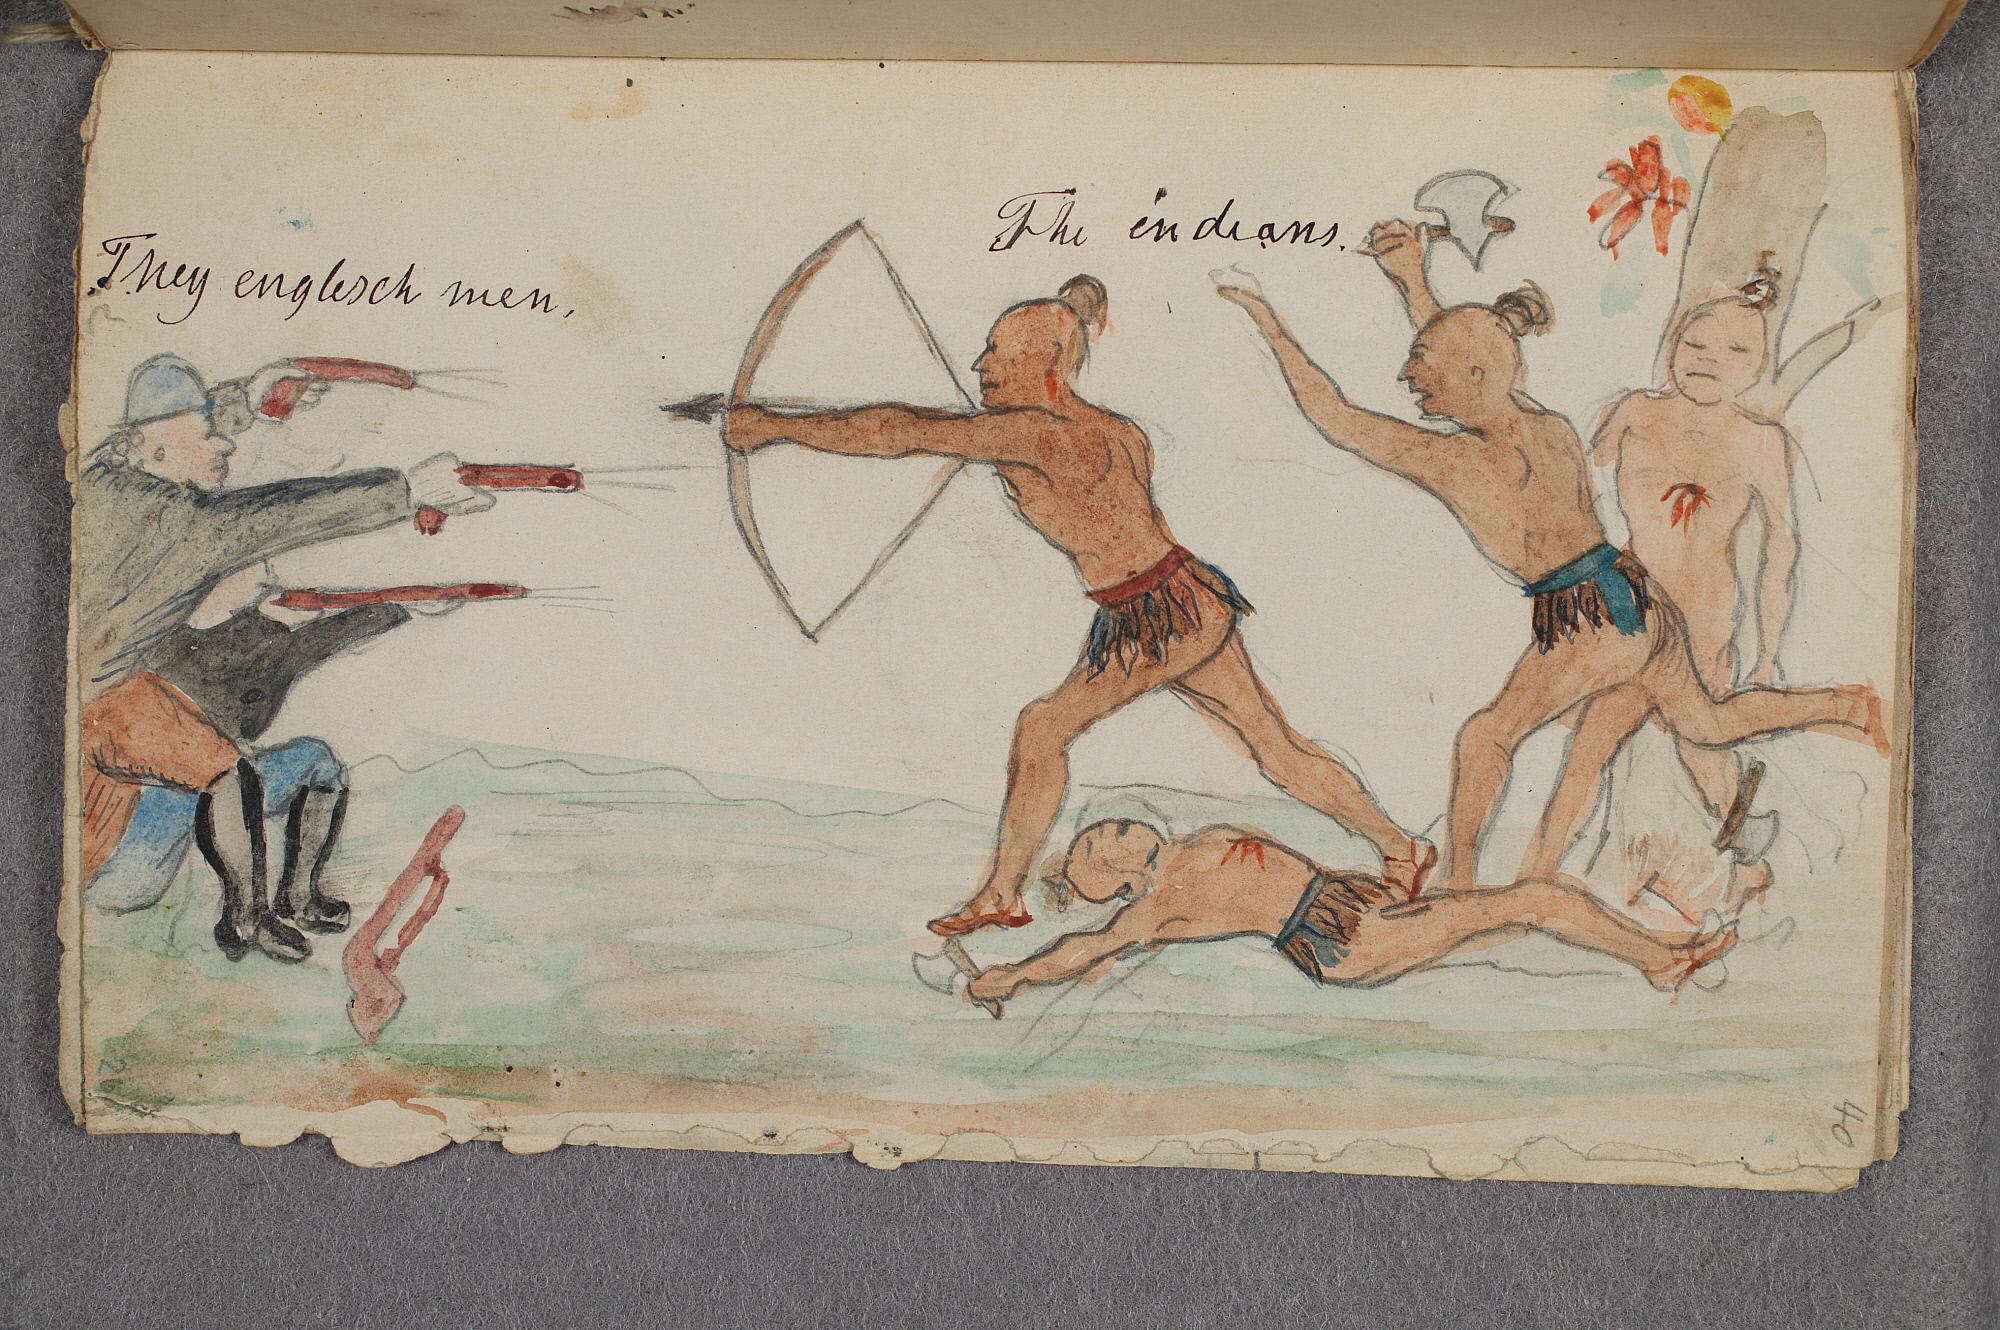 They englisch men.
The indians.
40